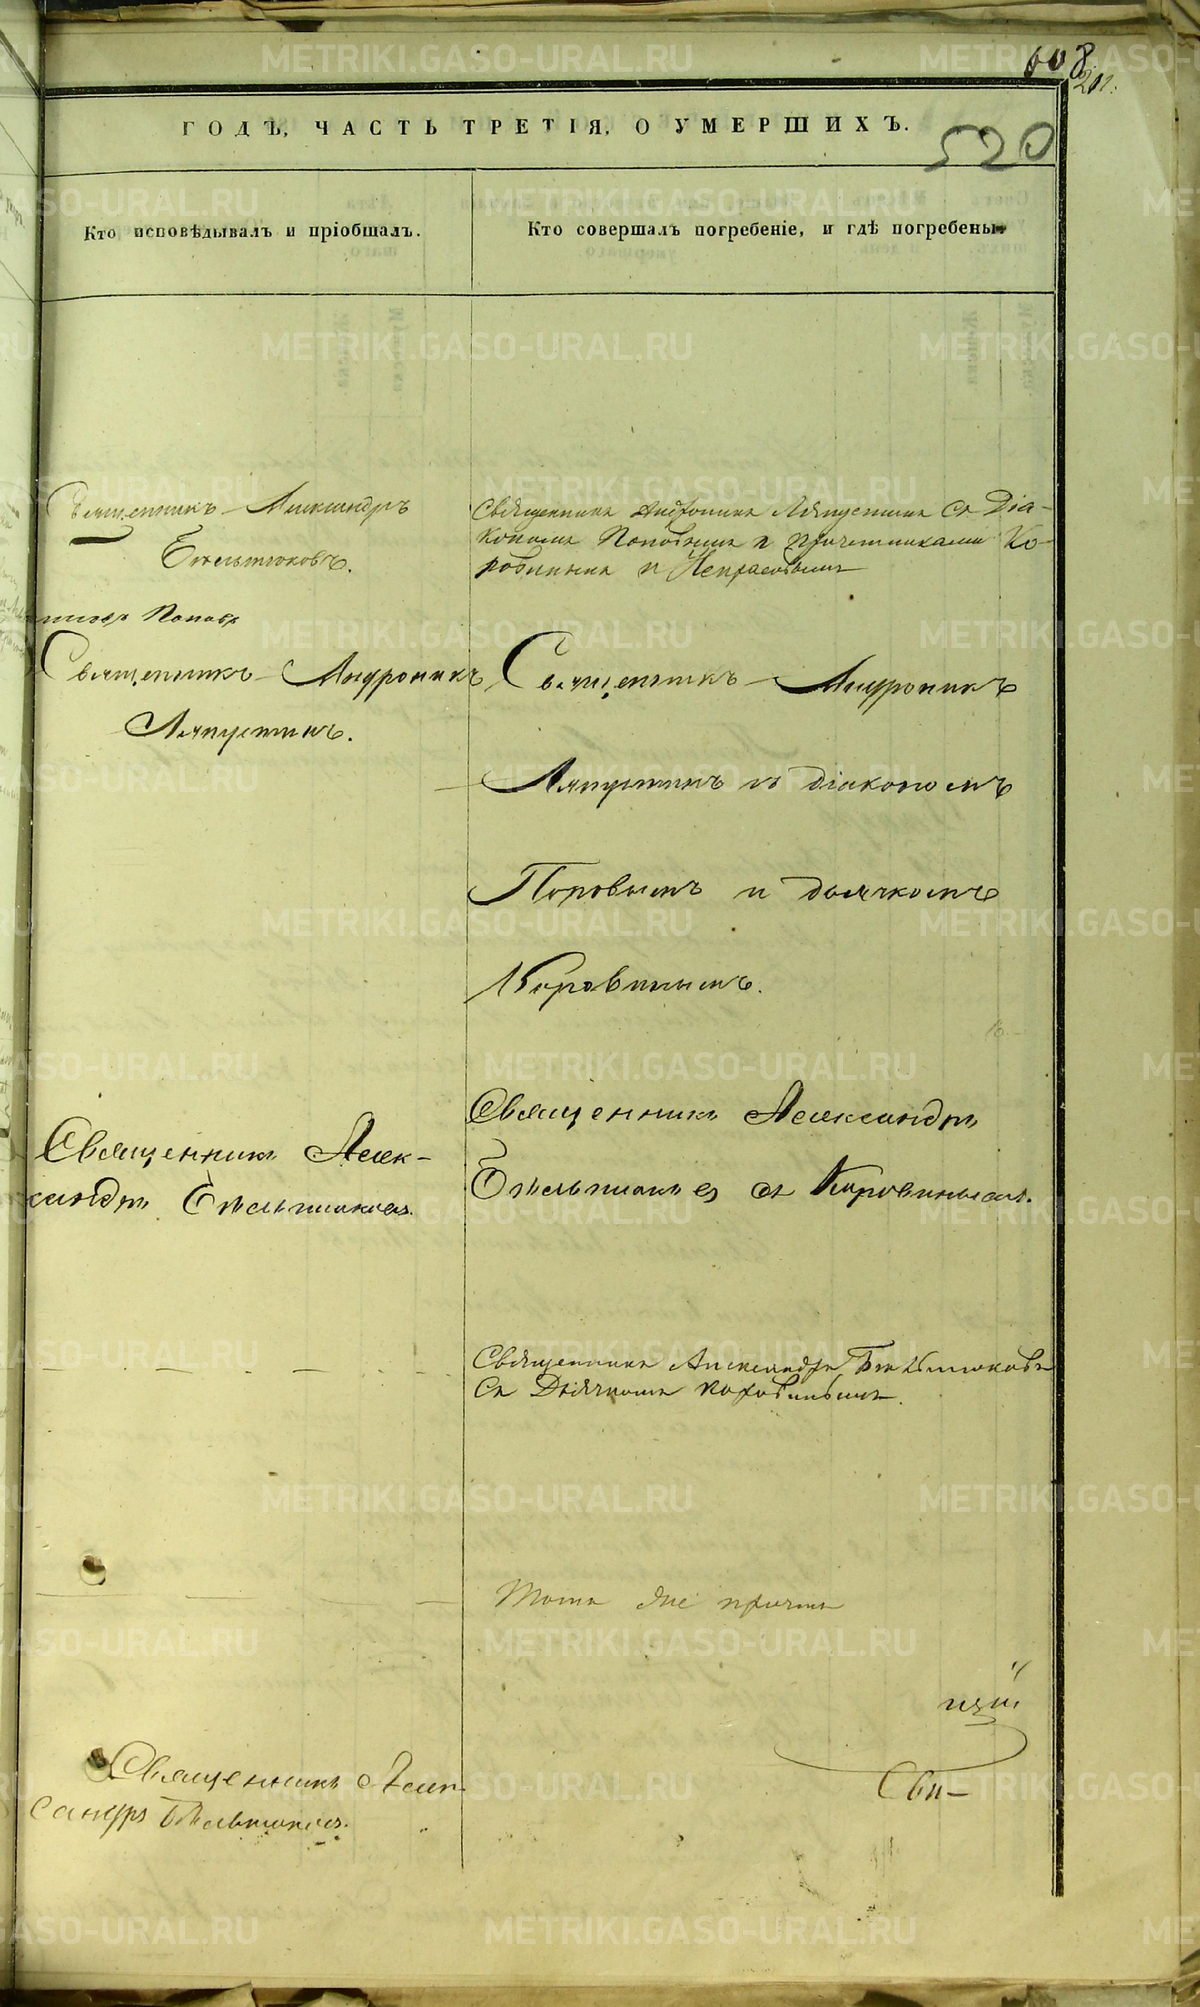 608
201.
520
ГОДЪ, ЧАСТЬ ТРЕТІЯ, О УМЕРШИХЪ.
Кто исповѣдывалъ и пріобщалъ.
Кто совершалъ погребеніе, и гдѣ погребены.
Священникъ Александръ
Бѣльтюковъ.
Священникъ Андроникъ Ляпустинъ съ Діа-
кономъ Поповымъ и причетниками Ко-
ровинымъ и Некрасовымъ
Поповъ
Священникъ Андроникъ
Ляпустинъ.
Священникъ Андроникъ
Ляпустинъ съ діакономъ
Поповымъ и дьячкомъ
Коровинымъ.
Священникъ Алек-
сандръ Бѣльтюковъ.
Священникъ Александръ
Бѣльтюковъ съ Коровинымъ.
Священникъ Александръ Бѣльтюковъ
Съ Дьячкомъ Коровинымъ.
Тотъ же причтъ
Священникъ Алек-
сандръ Бѣльтюковъ.
щій
Сви-
METRIKI.GASO-URAL.RU